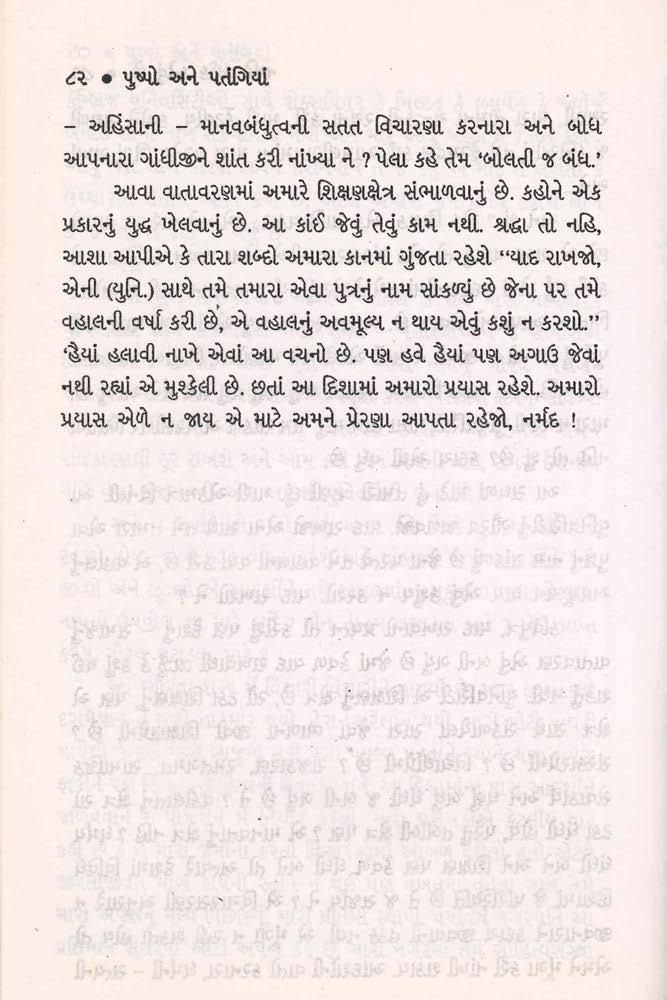 ૮૨ • પુષ્પો અને પતંગિયાં
– અહિંસાની – માનવબંધુત્વની સતત વિચારણા કરનારા અને બોધ
આપનારા ગાંધીજીને શાંત કરી નાંખ્યા ને ? પેલા કહે તેમ ‘બોલતી જ બંધ.’
આવા વાતાવરણમાં અમારે શિક્ષણક્ષેત્ર સંભાળવાનું છે. કહોને એક
પ્રકારનું યુદ્ધ ખેલવાનું છે. આ કાંઈ જેવું તેવું કામ નથી. શ્રદ્ધા તો નહિ,
આશા આપીએ કે તારા શબ્દો અમારા કાનમાં ગુંજતા રહેશે “યાદ રાખજો,
એની (યુનિ.) સાથે તમે તમારા એવા પુત્રનું નામ સાંકળ્યું છે જેના પર તમે
વહાલની વર્ષા કરી છે, એ વહાલનું અવમૂલ્ય ન થાય એવું કશું ન કરશો..”
‘હૈયાં હલાવી નાખે એવાં આ વચનો છે. પણ હવે હૈયાં પણ અગાઉ જેવાં
નથી રહ્યાં એ મુશ્કેલી છે. છતાં આ દિશામાં અમારો પ્રયાસ રહેશે. અમારો
પ્રયાસ એળે ન જાય એ માટે અમને પ્રેરણા આપતા રહેજો, નર્મદ !